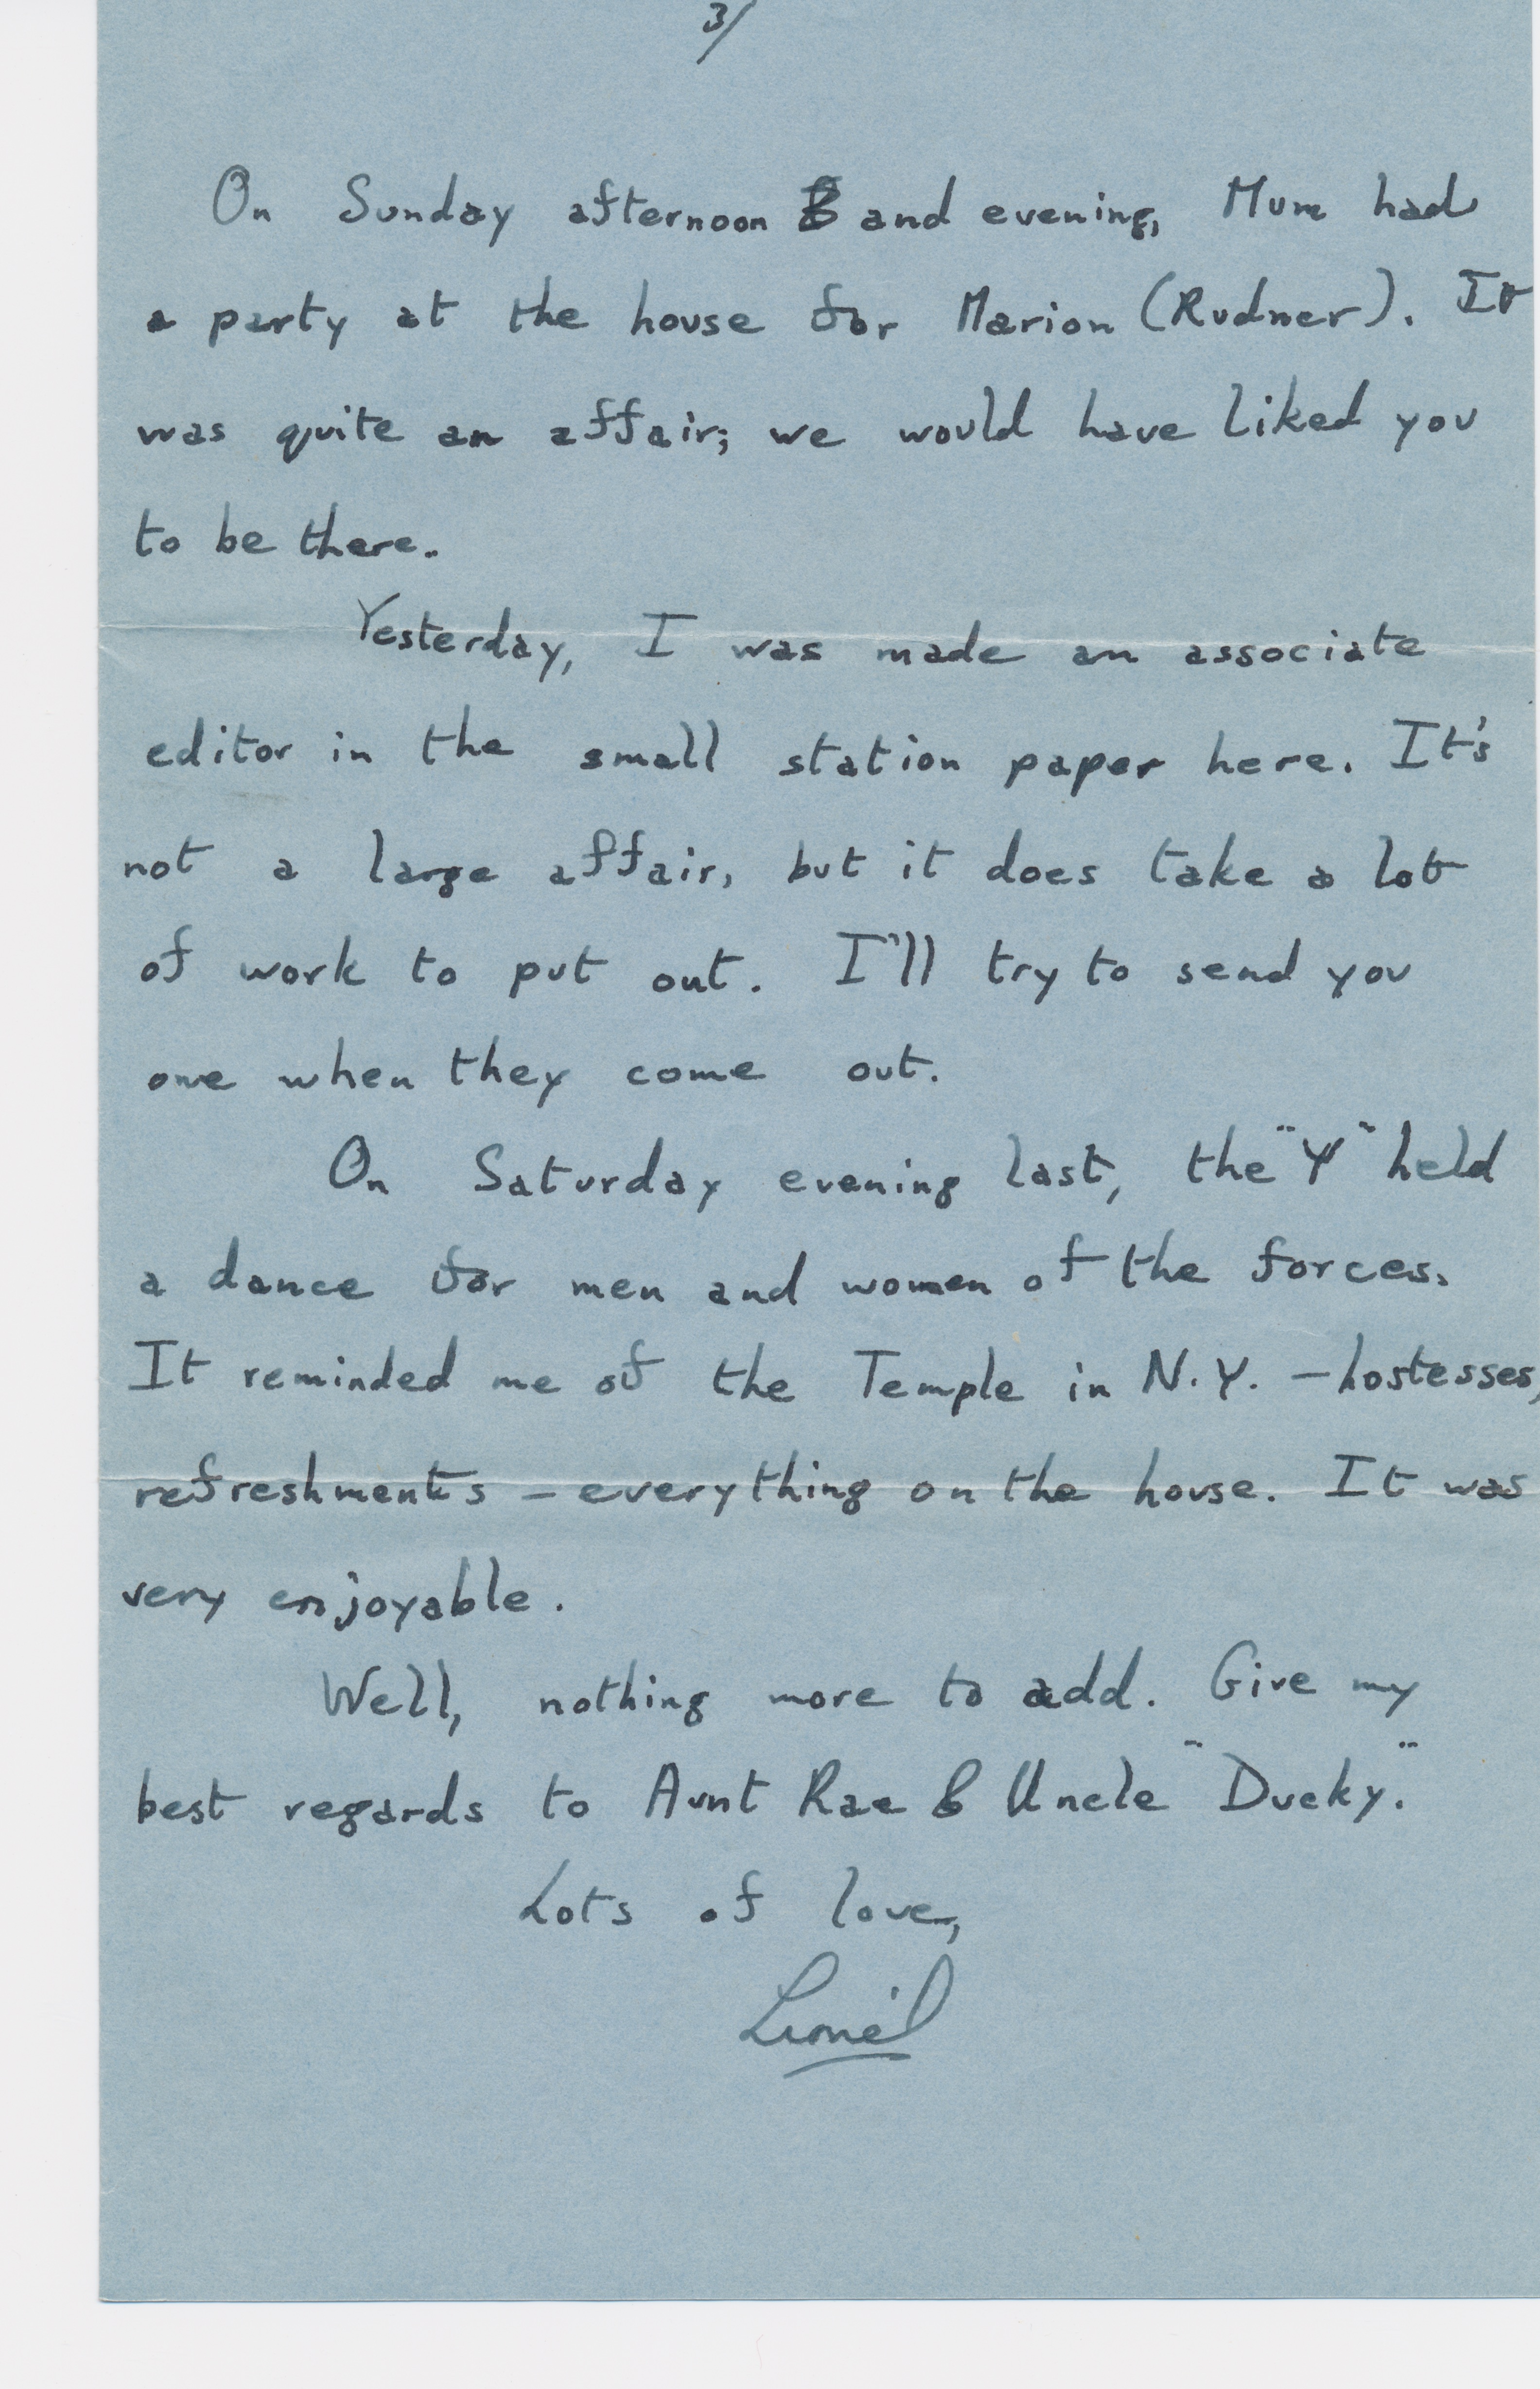 3/
On Sunday afternoon and evening, Mum had
a party at the house for Marion (Rudner). It
was quite an affair; we would have liked you
to be there.
Yesterday, I was made an associate
editor in the small station paper here. It's
not a large affair, but it does take a lot
of work to put out. I'll try to send you
one when they come out.
On Saturday evening last, the "Y" held
a dance for men and women of the forces.
It reminded me of the Temple in N.Y. – hostesses,
refreshments – everything on the house. It was
very enjoyable.
Well, nothing more to add. Give my
best regards to Aunt Rae & Uncle "Ducky."
Lots of love,
Lionel